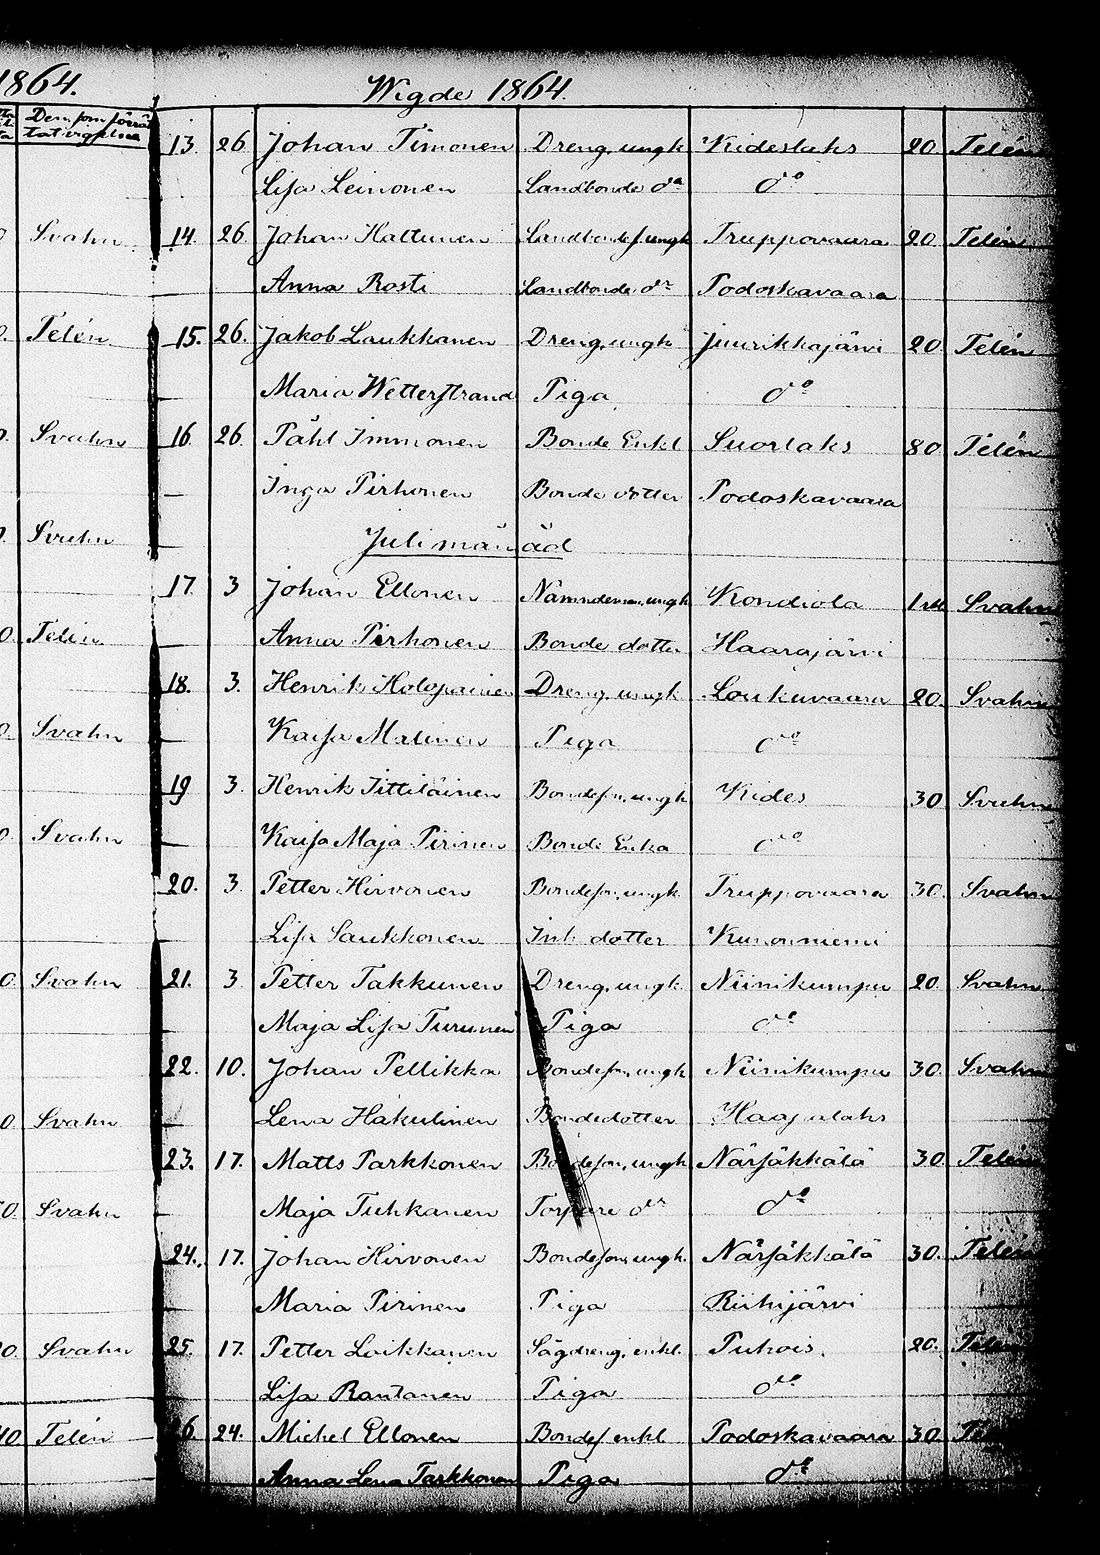 1864.
Dem som förrät
tat vigseln
Svahn
Telén
Svahn
Svahn
Telén
Svahn
Svahn
Svahn
Svahn
Svahn
Svahn
Telén
Wigde 1864.
13. 26. Johan Timonen Dreng, ungk Kideslaks 20 Telén
Lisa Leinonen Landbonde do do
14. 26. Johan Hattunen Landbondes. ungk Truppovaara 20 Telén
Anna Rosti Landbonde dr Podoskavaara
15. 26. Jakob Laukkanen Dreng, ungk Juurikkajärvi 20 Telén
Maria Wetterstrand Piga do
16. 26. Påhl Immonen Bonde Enkl Suorlaks 80 Telén
Inga Pirhonen Bonde dotter Podoskavaara
Juli månad
17. 3 Johan Ellonen Nämndeman, ungk Kondiola Svahn
Anna Pirhonen Bonde dotter Haarajärvi
18. 3. Henrik Holopainen Dreng, ungk Loukuvaara 20. Svahn
Kaisa Malinen Piga do
19 3. Henrik Tittiläinen Bondeson, ungk Kides 30 Svahn
Kaisa Maja Pirinen Bonde Enka do
20. 3. Petter Hirvonen Bondeson, ungk. Truppovaara 30. Svahn
Lisa Saukkonen Inh dotter Kunonniemi
21. 3 Petter Takkunen Dreng, ungk Niinikumpu 20. Svahn
Maja Lisa Turunen Piga do
22. 10. Johan Pellikka Bondeson, ungk Niinikumpu 30. Svahn
Lena Hakulinen Bondedotter Haapalaks
23. 17. Matts Parkkonen Bondeson, ungk Närsäkkälä 30. Telén
Maja Tuhkanen Torpare dr do
24. 17. Johan Hirvonen Bondeson, ungk. Närsäkkälä 30. Telén
Maria Pirinen Piga Riihijärvi
25. 17. Petter Loikkanen Sågdreng, enkl. Puhois. 20. Telén
Lisa Rantanen Piga do
26. 24. Michel Ellonen Bondes enkl Podoskavaara 30.
Anna Lena Parkkonen Piga do